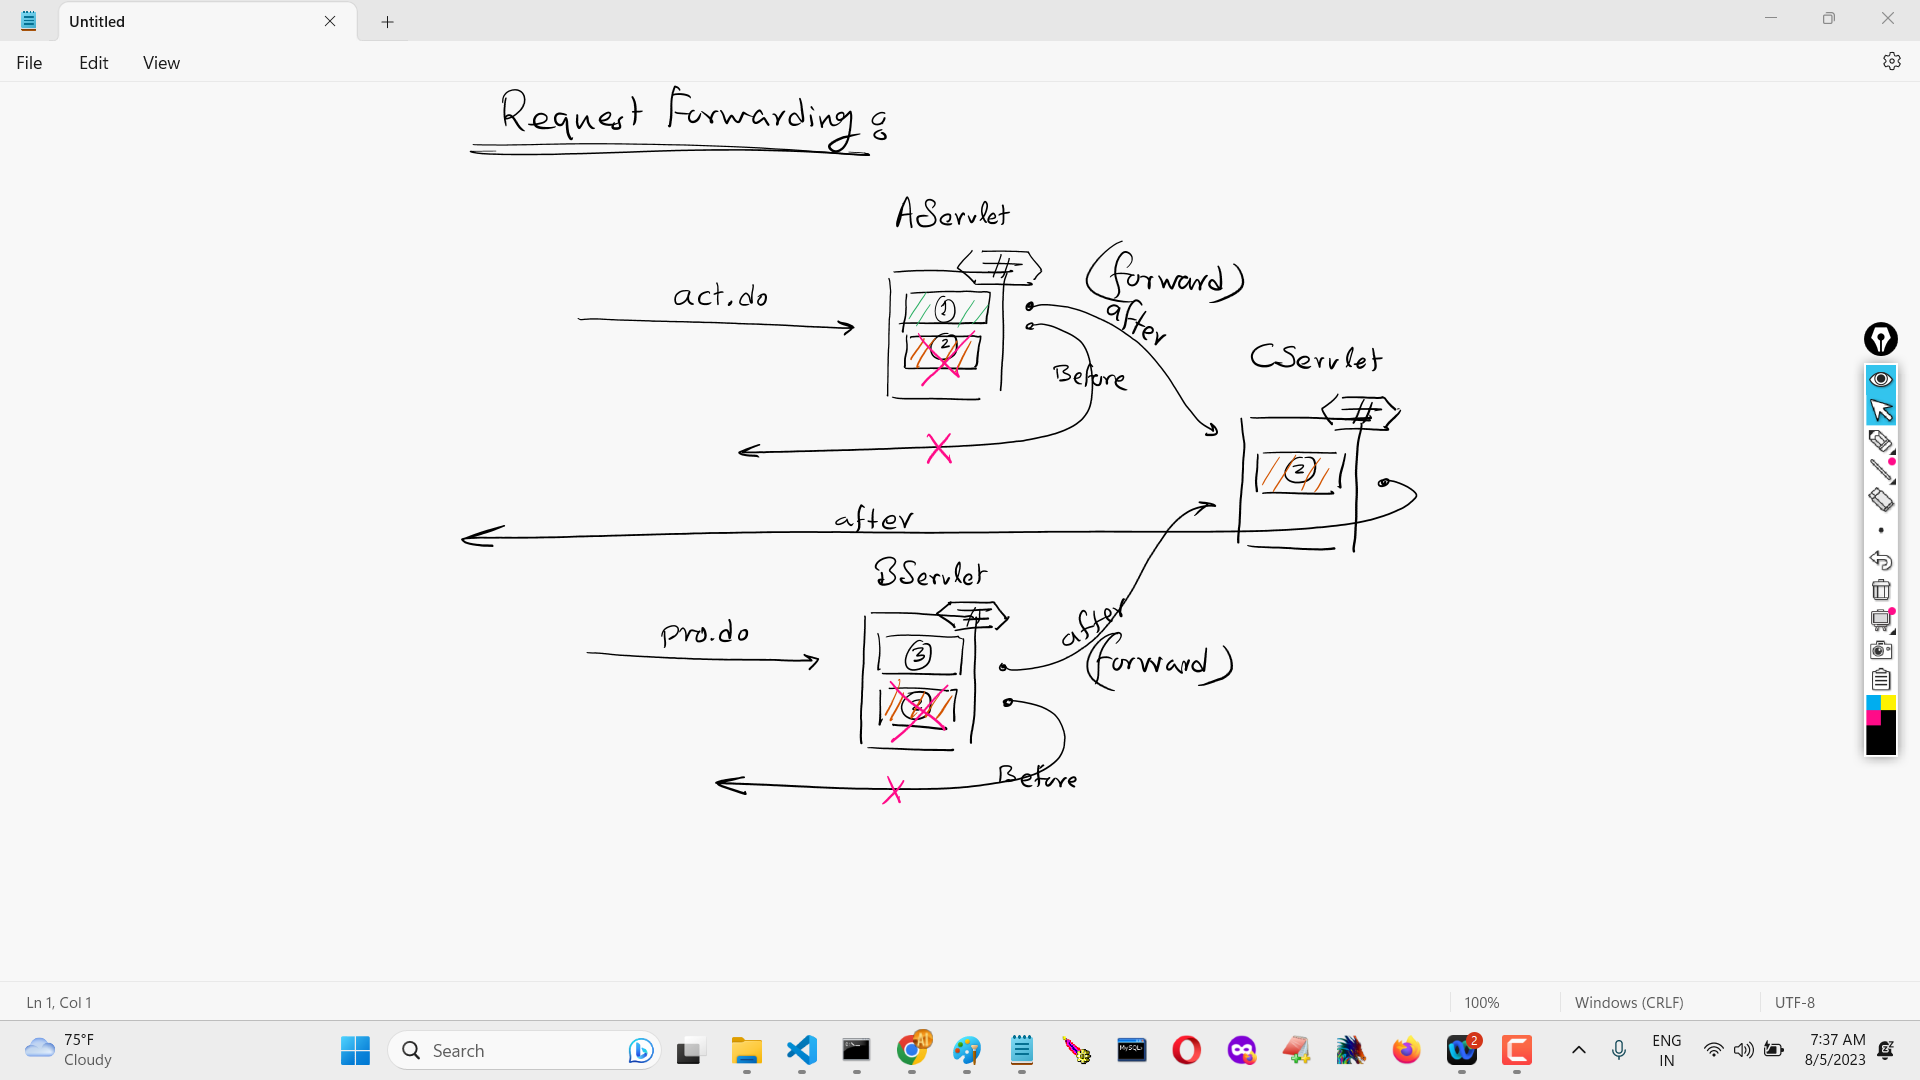 Untitled
File Edit View
Request Forwarding :
AServlet
act.do
1
2
(forward)
after
Before
CServlet
2
after
BServlet
pro.do
3
2
after
(forward)
Before
Ln 1, Col 1
100%
Windows (CRLF)
UTF-8
75°F
Cloudy
Search
2
ENG
IN
7:37 AM
8/5/2023